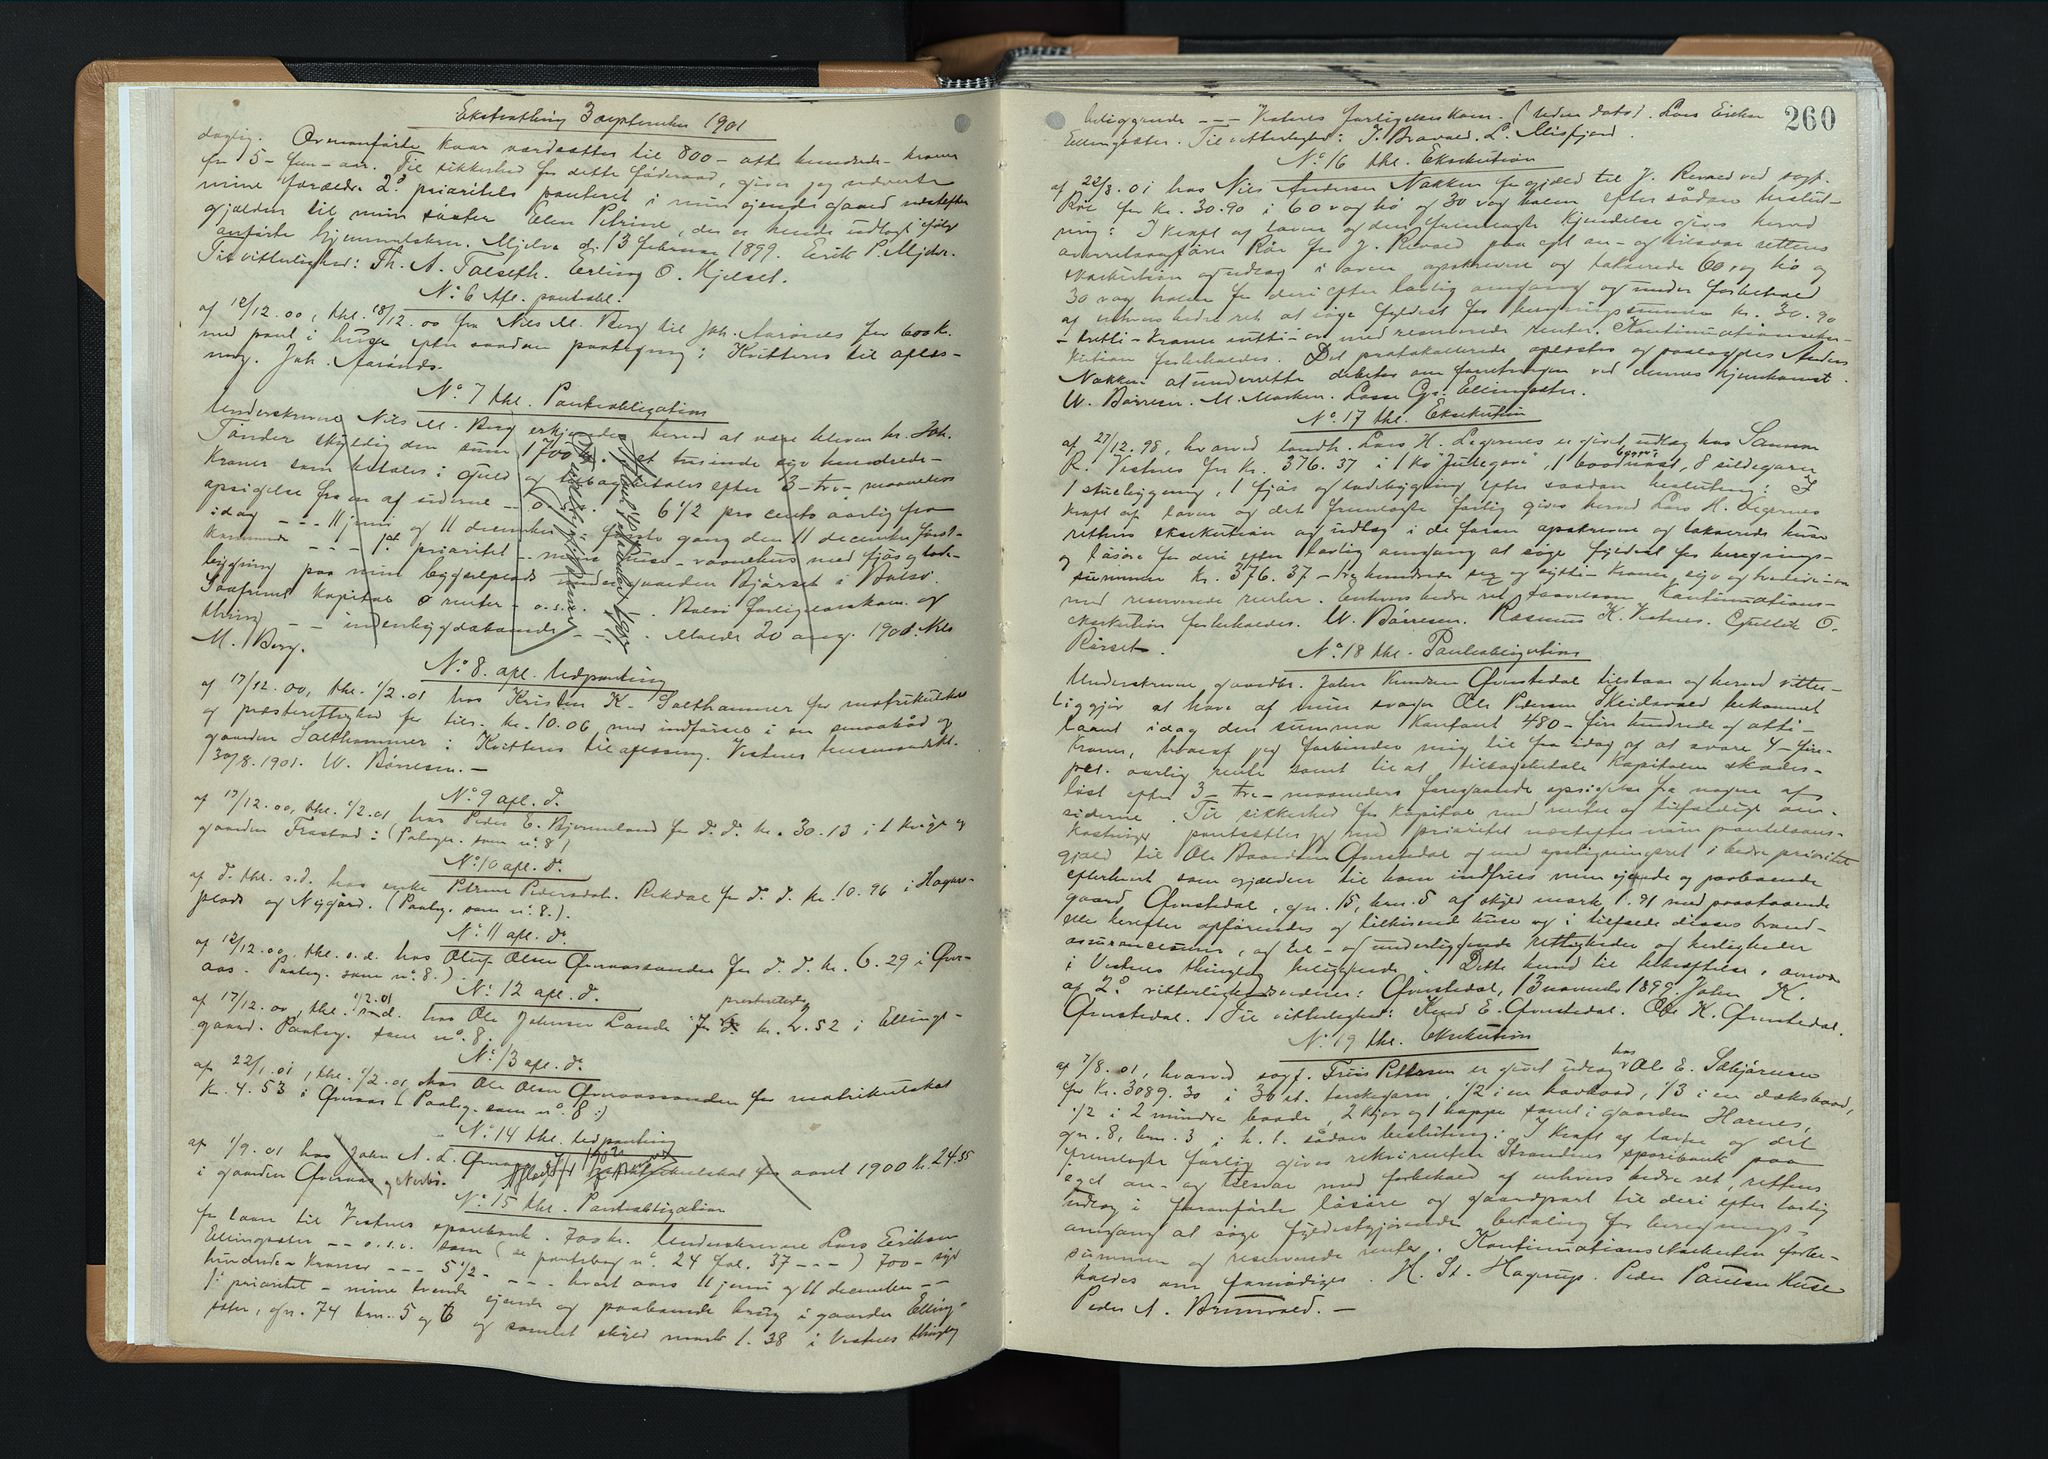 Ekstrathing 3 september 1901
daglig. Ovenanførte kaar værdsættes til 800 – otte hundrede – kroner
for 5 – fem – aar. Til sikkerhed for dette føderaad, giver jeg nævnte
mine forældre 2° prioritets panteret i min eiende gaard næstefter
gjælden til min søster Elen Petrine, den er hende udlagt ifølge
anførte hjemmelsdok. Mjelve d. 13 februar 1899. Erik P. Mjelve.
Til vitterlighed: Th. A. Talseth. Erling O. Hjelset.
No. 6 Afl. panteobl.
af 12/12.00, thl. 18/12.00 fra Nils M. Berg til Joh. Aarønes for 600 kr.
med pant i huse efter saadan paategning: Kvitteres til aflæs-
ning. Joh. Aarønes.
No. 7 thl. Panteobligation
Underskrevne Nils M. Berg erkjender herved at være bleven hr. Joh.
Tønder skyldig den sum 1700 kr. et tusinde syv hundrede –
kroner som betales i guld og tilbagebetales efter 3 – tre – maaneders
opsigelse fra en af siderne – o.s.v. 6 1/2 pro cento aarlig fra
idag – – – 11 juni og 11 december første gang den 11 december først-
kommende – – – 1st prioritet – mine huse – vaanehus med fjøs og lade-
bygning paa min byggeplads under gaarden Bjørset i Bolsø.
Saafremt kapital & renter – o.s.v. Bolsø forligelseskom. og
thing – – indenbygdsboende – – Molde 20 aug. 1901. Nils
M. Berg.
No. 8. afl. Udpanting
af 17/12.00, thl. 1/2.01 hos Kristen K. Salthammer for matrikulskat
og præsterettighed for tils. kr. 10.06 med indførsel i en smaabåd og
gaarden Salthammer: Kvitteres til aflæsning. Vestnes lensmandskt.
30/8.1901. W. Børresen. –
No. 9 afl. do.
af 17/12.00, thl. 1/2.01 hos Peder E. Bjermeland for d. d. kr. 30.13 i 1 kvige og
gaarden Frostad: (Pategn. som no. 8)
No. 10 afl. do.
af d. thl. s.d. hos enke Petrine Pedersdat. Rekdal for d. d. kr. 10.96 i Hagers-
plads og Nygård. (Paateg. som no. 8.).
No. 11 afl. do.
af 12/12.00, thl. s. d. hos Oluf Olsen Øveraassanden for d. d. kr. 6.29 i Øver-
aas. Paateg. som no. 8.)
No. 12 afl. do.
af 17/12.00, thl. 1/2.01 hos Ole Johnsen Lande for præsterettighed kr. 2.52 i Ellings-
gaard. Paateg. som no. 8.
No. 13 afl. do.
af 22/1.01, thl. 1/2.01 hos Ole Olsen Øveraassanden for matrikulskat
kr. 4.53 i Øveraas (Paateg. som no. 8.)
No. 14 thl. Udpanting
af 1/9.01 hos John A. L. Øveraas for matrikulskat for aaret 1900 kr. 24.55
i gaarden Øveraas og Nerbø.
No. 15 thl. Panteobligation
for laan til Vestnes sparebank. 700 kr. Underskrevne Lars Eriksen
Ellingsæter – – o.s.v. som (se pantebog no. 24 fol. 37 – – –) 700 – syv
hundrede – kroner – – – 5 1/2 – – – – hvert aars 11 juni og 11 december – –
1. prioritet – mine tvende eiende og paaboende brug i gaarden Elling-
sæter, gn. 74 brn. 5 og 6 og samlet skyld mark 1.38 i Vestnes thinglag
260
beliggende – – – Vestnes forligelseskom. (uden dato). Lars Eriksen
Ellingsæter. Til vitterlighed: J. Bravold. L. Misfjord.
No. 16 thl. Eksekution
af 22/8.01 hos Nils Andersen Nakken for gjæld til J. Rerved ved sagf.
Røe for kr. 30.90 i 60 vog hø og 30 vog halm efter sådan beslut-
ning: I kraft af loven og den fremlagte kjendelse gives herved
overretssagfører Røe for J. Rerved paa eget an- og tilsvar rettens
eksekution og udlæg i oven opskrevne og takserede 60 vog hø og
30 vog halm for deri efter lovlig omgang og under forbehold
af enhvers bedre ret at søge fyldest for beregningssummen kr. 30.90
– tretti – kroner nitti – øre med reserverede renter. Kontinuationsekse-
kution forbeholdes. Det protokollerede oplæstes og paalagdes Anders
Nakken at underrette debitor om forretningen ved dennes hjemkomst.
W. Børresen. M. Morken. Lasse Gj. Ellingsæter.
No. 17 thl. Eksekution
af 27/12.98, hvorved landh. Lars H. Legernes er givet udlæg hos Samson
R. Vestnes for kr. 376.37 i 1 ko "Julegave", 1 baadnøst, 8 sildegarn
1 stuebygning, 1 fjøs og ladebygning efter saadan beslutning: I
kraft af loven og det fremlagte forlig gives herved Lars H. Legernes
rettens eksekution og udlæg i de foran opskrevne og takserede huse
og løsøre for deri efter lovlig omgang at søge fyldest for beregnings-
summen kr. 376.37 – tre hundrede seg og sytti – kroner, syv og tredive – øre
med reserverede renter. Enhvers bedre ret saavelsom kontinuations-
eksekution forbeholdes. W. Børresen. Rasmus K. Vestnes. O.
Rørset.
No. 18 thl. Panteobligation
Underskrevne gaardbr. John Knudsen Øvrestedal tilstaar og herved vitter-
liggjør at have af min svager Ole Pedersen Skeidsvold bekommet
laant idag den summa kontant 480 – fire hundrede og otti –
kroner, hvoraf jeg forbinder mig til fra idag af at svare 4 – fire –
pct. aarlig rente samt til at tilbagebetale kapitalen skades-
løst efter 3 – tre – maaneders foregaaende opsigelse fra nogen af
siderne. Til sikkerhed for kapital med renter og tilfældige om-
kostninger pantsætter jeg med prioritet næstefter min pantelaans-
gjæld til Ole Øvrestedal og med opstigningsret i bedre prioritet
efterhvert som gjælden til ham indfries min eiende og paaboende
gaard Øvrestedal, gn. 15, brn. 5 af skyld mark 1.91 med paastaaende
eller herefter opførendes og tilhørende huse og i tilfælde disses brand-
assurancesummer, og til- og underliggende rettigheder og herligheder
i Vestnes thinglag beliggende. Dette hund til bekræftelse, overv.
af 2° vitterlighedsvidner: Øvrestedal, 13 november 1899. John K.
Øvrestedal. Til vitterlighed: Knud E. Øvrestedal. Ole K. Øvrestedal.
No. 19 thl. Eksekution
af 7/8.01, hvorved sagf. Friis Pettersen er givet udlæg hos Ole E. Sæbjørnsen
for kr. 3089.30 i 30 st. torskegarn, 1/2 i en havbaad, 1/3 i en dæksbaad,
1/2 i 2 mindre baade, 2 kjør og 1 hoppe samt i gaarden Harnes,
gn. 8, brn. 3 i h. t. sådan beslutning: I kraft af loven og det
fremlagte forlig gives rekvirenten Strandens sparebank paa
eget an- og tilsvar med forbehold af enhvers bedre ret, rettens
udlæg i foranførte løsøre og gaardpart til deri efter lovlig
omgang at søge fyldestgjørende betaling for beregnings-
summen og reserverede renter. Kontinuationseksekution forbe-
holdes om fornødiges. H. St. Hagerup. Peder Paulsen Huse
Peder A. Brunvold. –